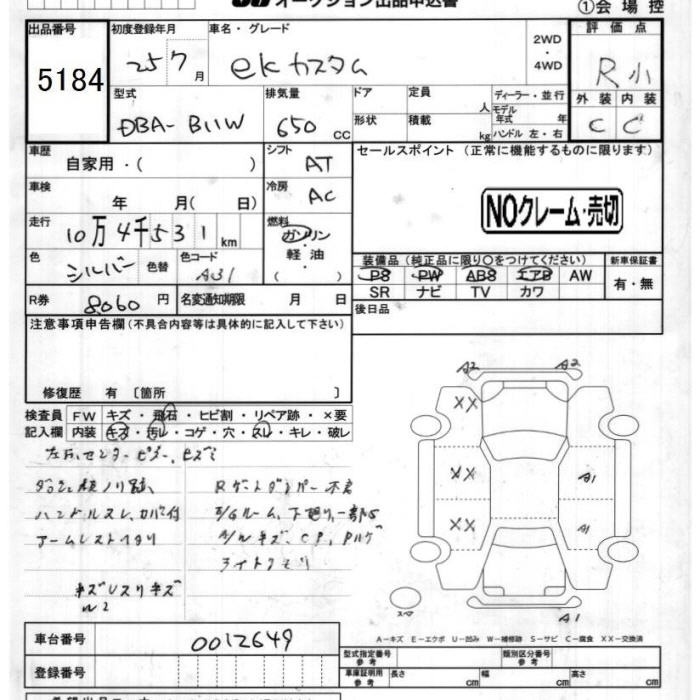 オークション出品申込書
①会場控
出品番号
5184
初度登録年月
25 7月
車名・グレード
ekカスタム
2WD・4WD
評価点
R小
外装 内装
C C
型式
DBA-B11W
排気量
650 cc
ドア
形状
定員 人
積載 kg
ディーラー・並行
モデル年式 年
ハンドル 左・右
車歴
自家用・( )
シフト
AT
セールスポイント (正常に機能するものに限ります)
NOクレーム・売切
車検
年 月( 日)
冷房
AC
走行
10万4千531km
燃料
ガソリン
軽油
( )
色
シルバー 色替
色コード
A31
装備品(純正品に限り○をつけてください)
PS PW ABS エアB AW
SR ナビ TV カワ
新車保証書
有・無
R券
8060円
名変通知期限 月 日
後日品
注意事項申告欄(不具合内容等は具体的に記入して下さい)
修復歴 有 〔箇所 〕
検査員記入欄
FW キズ・飛石・ヒビ割・リペア跡・×要
内装 キズ・汚レ・コゲ・穴・スレ・キレ・破レ
左右、センターピラー、ヒズミ
ハンドルスレ、カバー付
ライトクモリ
A2 A2
XX
XX A1
XX A1
A1
A-キズ E-エクボ U-凹み W-補修跡 S-サビ C-腐食 XX-交換済
車台番号
0012649
登録番号
型式指定番号 参考
類別区分番号 参考
車庫証明用 参考
長さ cm
幅 cm
高さ cm